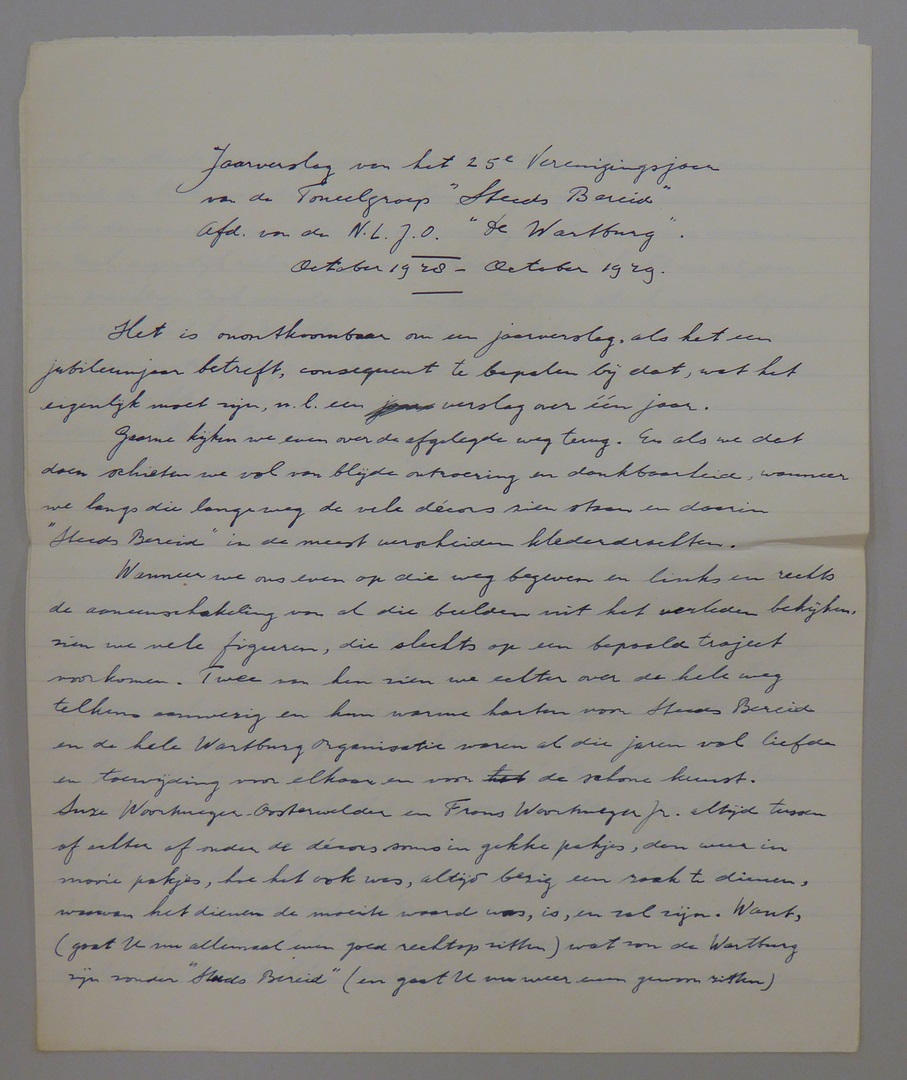 Jaarverslag van het 25e Verenigingsjaar
van de Toneelgroep "Steeds Bereid"
Afd. van de N.L.J.O. "De Wartburg".
October 1948 - October 1949.
Het is onontkoombaar om een jaarverslag, als het een
jubileumjaar betreft, consequent te bepalen bij dat, wat het
eigenlijk moet zijn, n.l. een verslag over één jaar.
Gaarne kijken we even over de afgelegde weg terug. En als we dat
doen schieten we vol van blijde ontroering en dankbaarheid, wanneer
we langs die lange weg de vele décors zien staan en daarin
"Steeds Bereid" in de meest verscheiden klederdrachten.
Wanneer we ons even op die weg begeven en links en rechts
de aaneenschakeling van al die beelden uit het verleden bekijken,
zien we vele figuren, die slechts op een bepaald traject
voorkomen. Twee van hen zien we echter over de hele weg
telkens aanwezig en hun warme harten voor Steeds Bereid
en de hele Wartburg organisatie waren al die jaren vol liefde
en toewijding voor elkaar en voor de schone kunst.
Suze Woortmeyer-Oosterwelder en Frans Woortmeyer Jr. altijd tussen
of achter of onder de décors soms in gekke pakjes, dan weer in
mooie pakjes, hoe het ook was, altijd bezig een zaak te dienen,
waarvan het dienen de moeite waard was, is, en zal zijn. Want,
(gaat U nu allemaal even goed rechtop zitten) wat zou de Wartburg
zijn zonder "Steeds Bereid" (en gaat U nu weer even gewoon zitten)